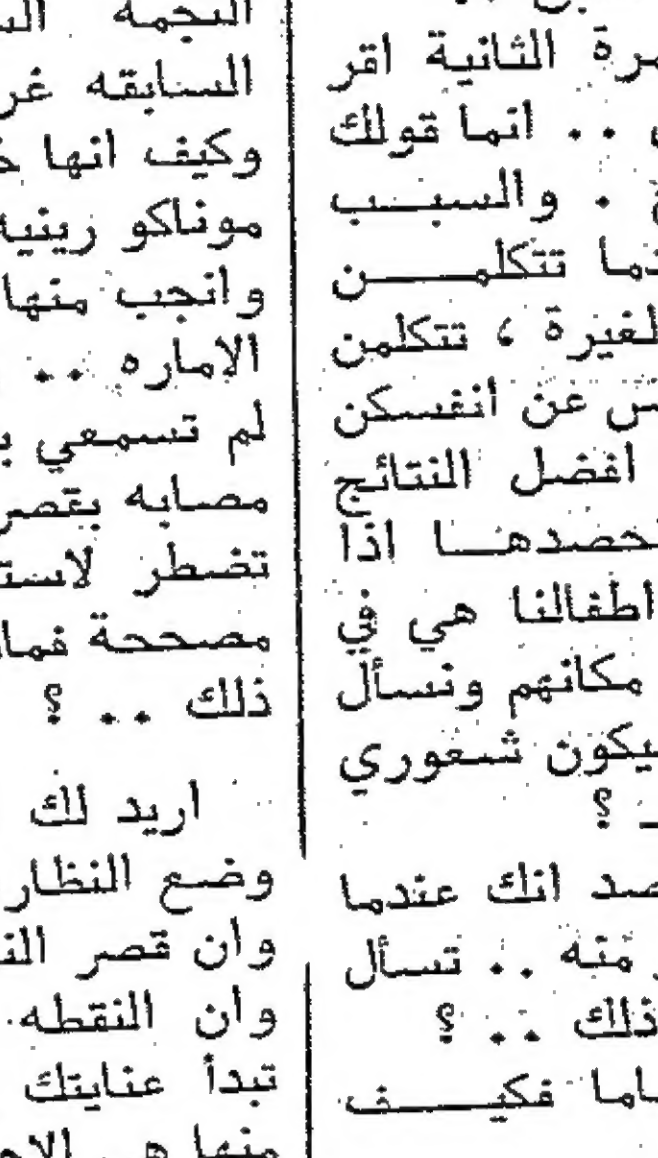 مرة الثانية اقر
.. انما قولك
. والسبب
تتكلمن
لغيرة ، تتكلمن
عن انفسكن
افضل النتائج
نحصدها اذا
اطفالنا هي في
مكانهم ونسأل
سيكون شعوري
؟
انك عندما
منه .. تسأل
ذلك .. ؟
فكيف
النجمه
السابقه
وكيف انها
موناكو رينيه
وانجب منها
الاماره ..
لم تسمعي
مصابه بقصر
تضطر
مصححة
ذلك .. ؟
اريد لك
وضع النظار
وان قصر
وان النقطه
تبدأ عنايتك
منها هي